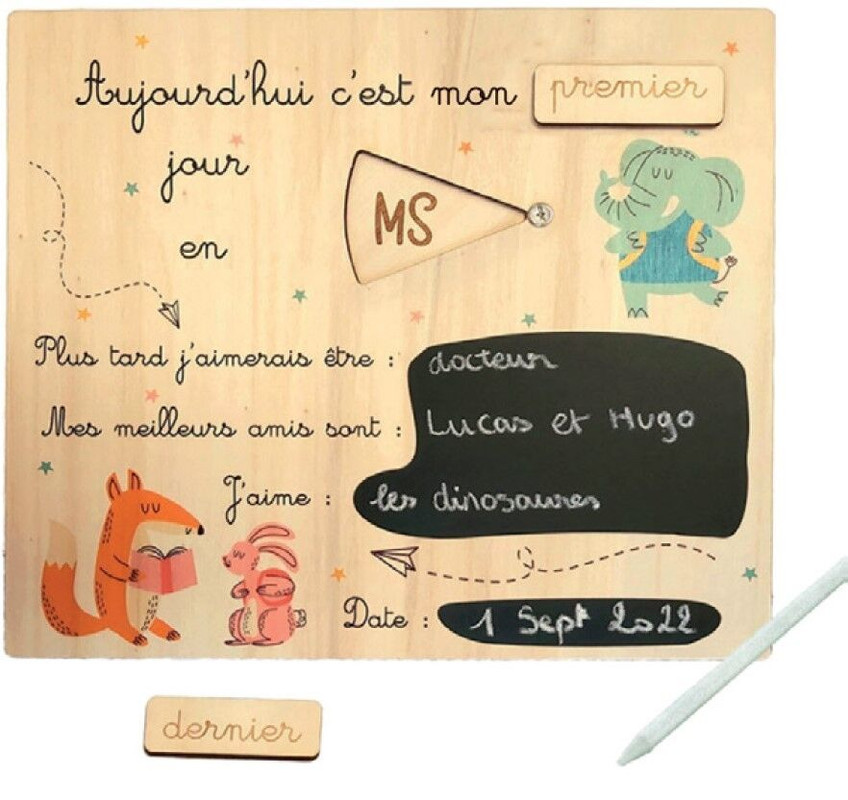 Aujourd'hui c'est mon premier
jour
MS
en
Plus tard j'aimerais être : docteur
Mes meilleurs amis sont : Lucas et Hugo
J'aime : les dinosaures
Date : 1 Sept 2022
dernier